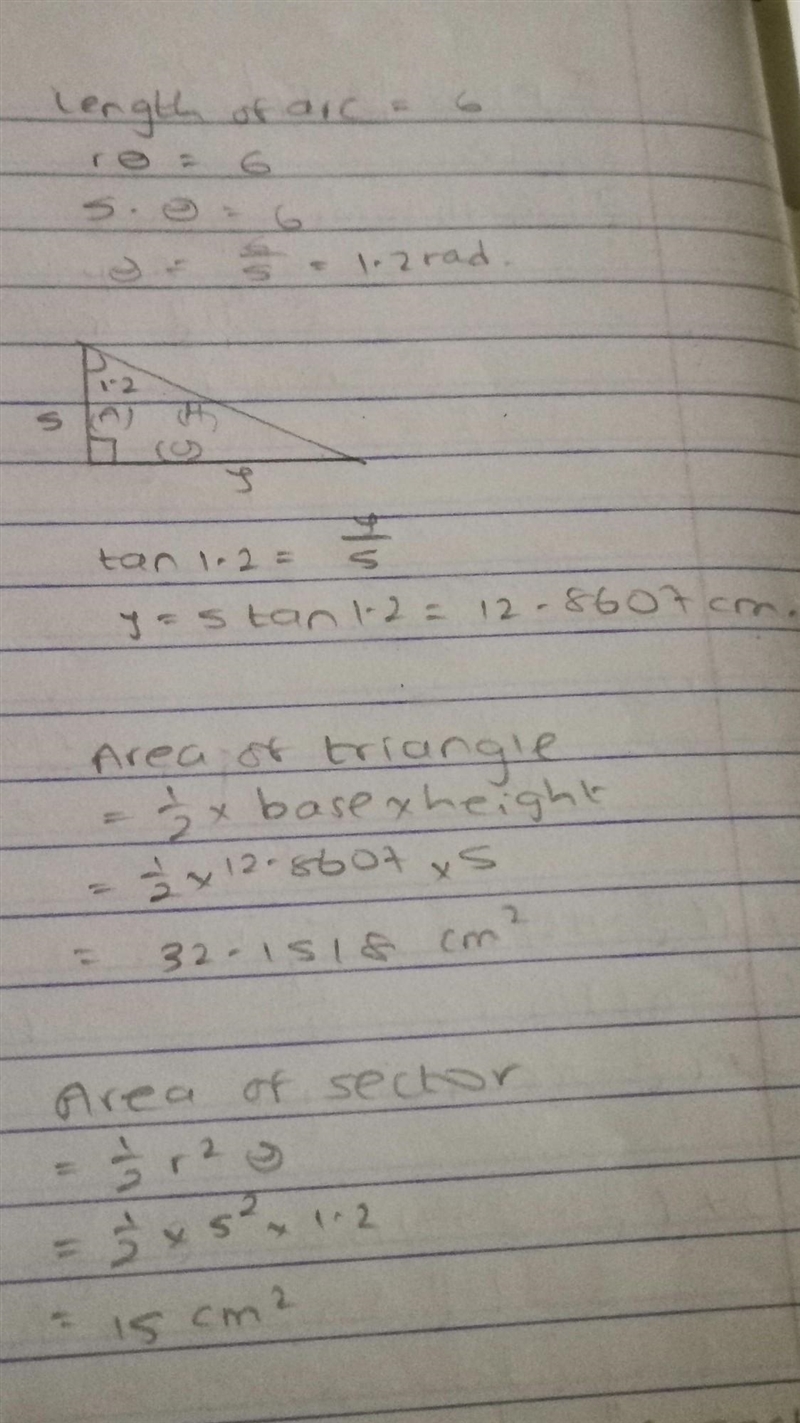 Length of arc = 6
rθ = 6
5.θ = 6
θ = 6/5 = 1.2 rad.
1.2
5 (A) (H)
(O)
y
tan 1.2 = y/5
y = 5 tan 1.2 = 12.8607 cm.
Area of triangle
= 1/2 × base × height
= 1/2 × 12.8607 × 5
= 32.1518 cm²
Area of sector
= 1/2 r² θ
= 1/2 × 5² × 1.2
= 15 cm²